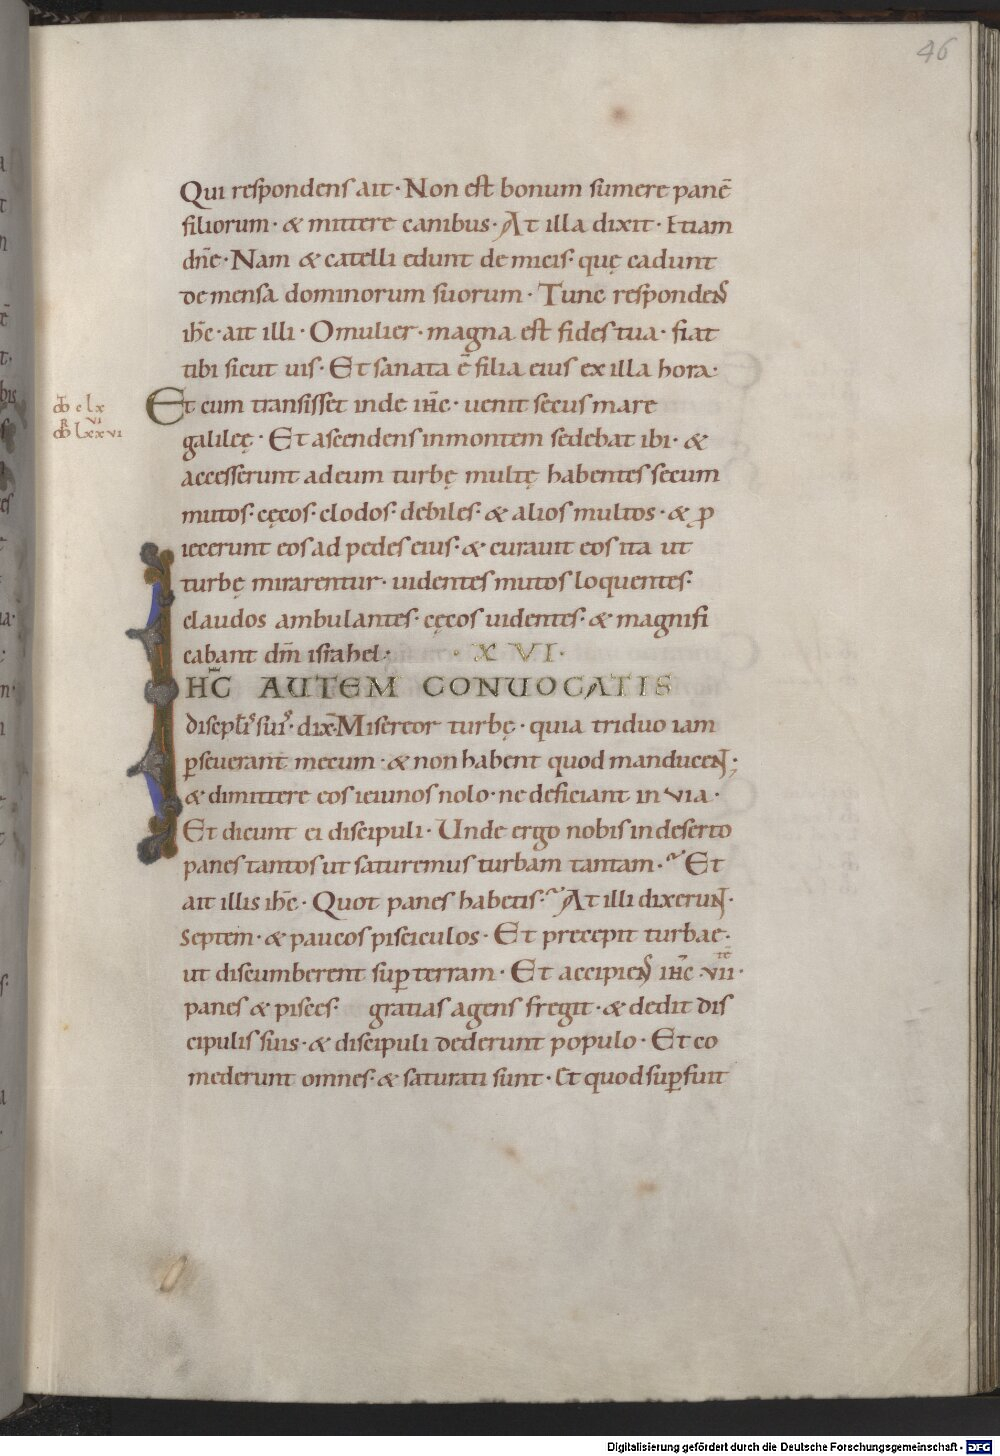 46
Qui respondens ait · Non est bonum sumere panē
filiorum · & mittere canibus · At illa dixit · Etiam
dn̄e · Nam & catelli edunt de micis · quę cadunt
de mensa dominorum suorum · Tunc responden̄s
ih̄c · ait illi · O mulier · magna est fides tua · fiat
tibi sicut uis · Et sanata ē filia eius ex illa hora ·
Et cum transisset inde ih̄c · uenit secus mare
galileę · Et ascendens in montem sedebat ibi · &
accesserunt ad eum turbę multę habentes secum
mutos · cęcos · clodos · debiles · & alios multos · & ꝓ
iecerunt eos ad pedes eius · & curauit eos ita ut
turbę mirarentur · uidentes mutos loquentes ·
claudos ambulantes · cęcos uidentes · & magnifi
cabant dm̄ israhel · · XVI ·
IH̄C AUTEM CONUOCATIS
discipl̄is suis · dix̄ · Misereor turbę · quia triduo iam
ꝑseuerant mecum · & non habent quod manducent ·
& dimittere eos ieiunos nolo · ne deficiant in via ·
Et dicunt ei discipuli · Unde ergo nobis in deserto
panes tantos ut saturemus turbam tantam · Et
ait illis ih̄c · Quot panes habetis · At illi dixerunt ·
Septem · & paucos pisciculos · Et precepit turbae ·
ut discumberent suꝑ terram · Et accipiens ih̄c · vii tē ·
panes & pisces · gratias agens fregit · & dedit dis
cipulis suis · & discipuli dederunt populo · Et co
mederunt omnes · & saturati sunt · Et quod suꝑfuit
Digitalisierung gefördert durch die Deutsche Forschungsgemeinschaft - DFG